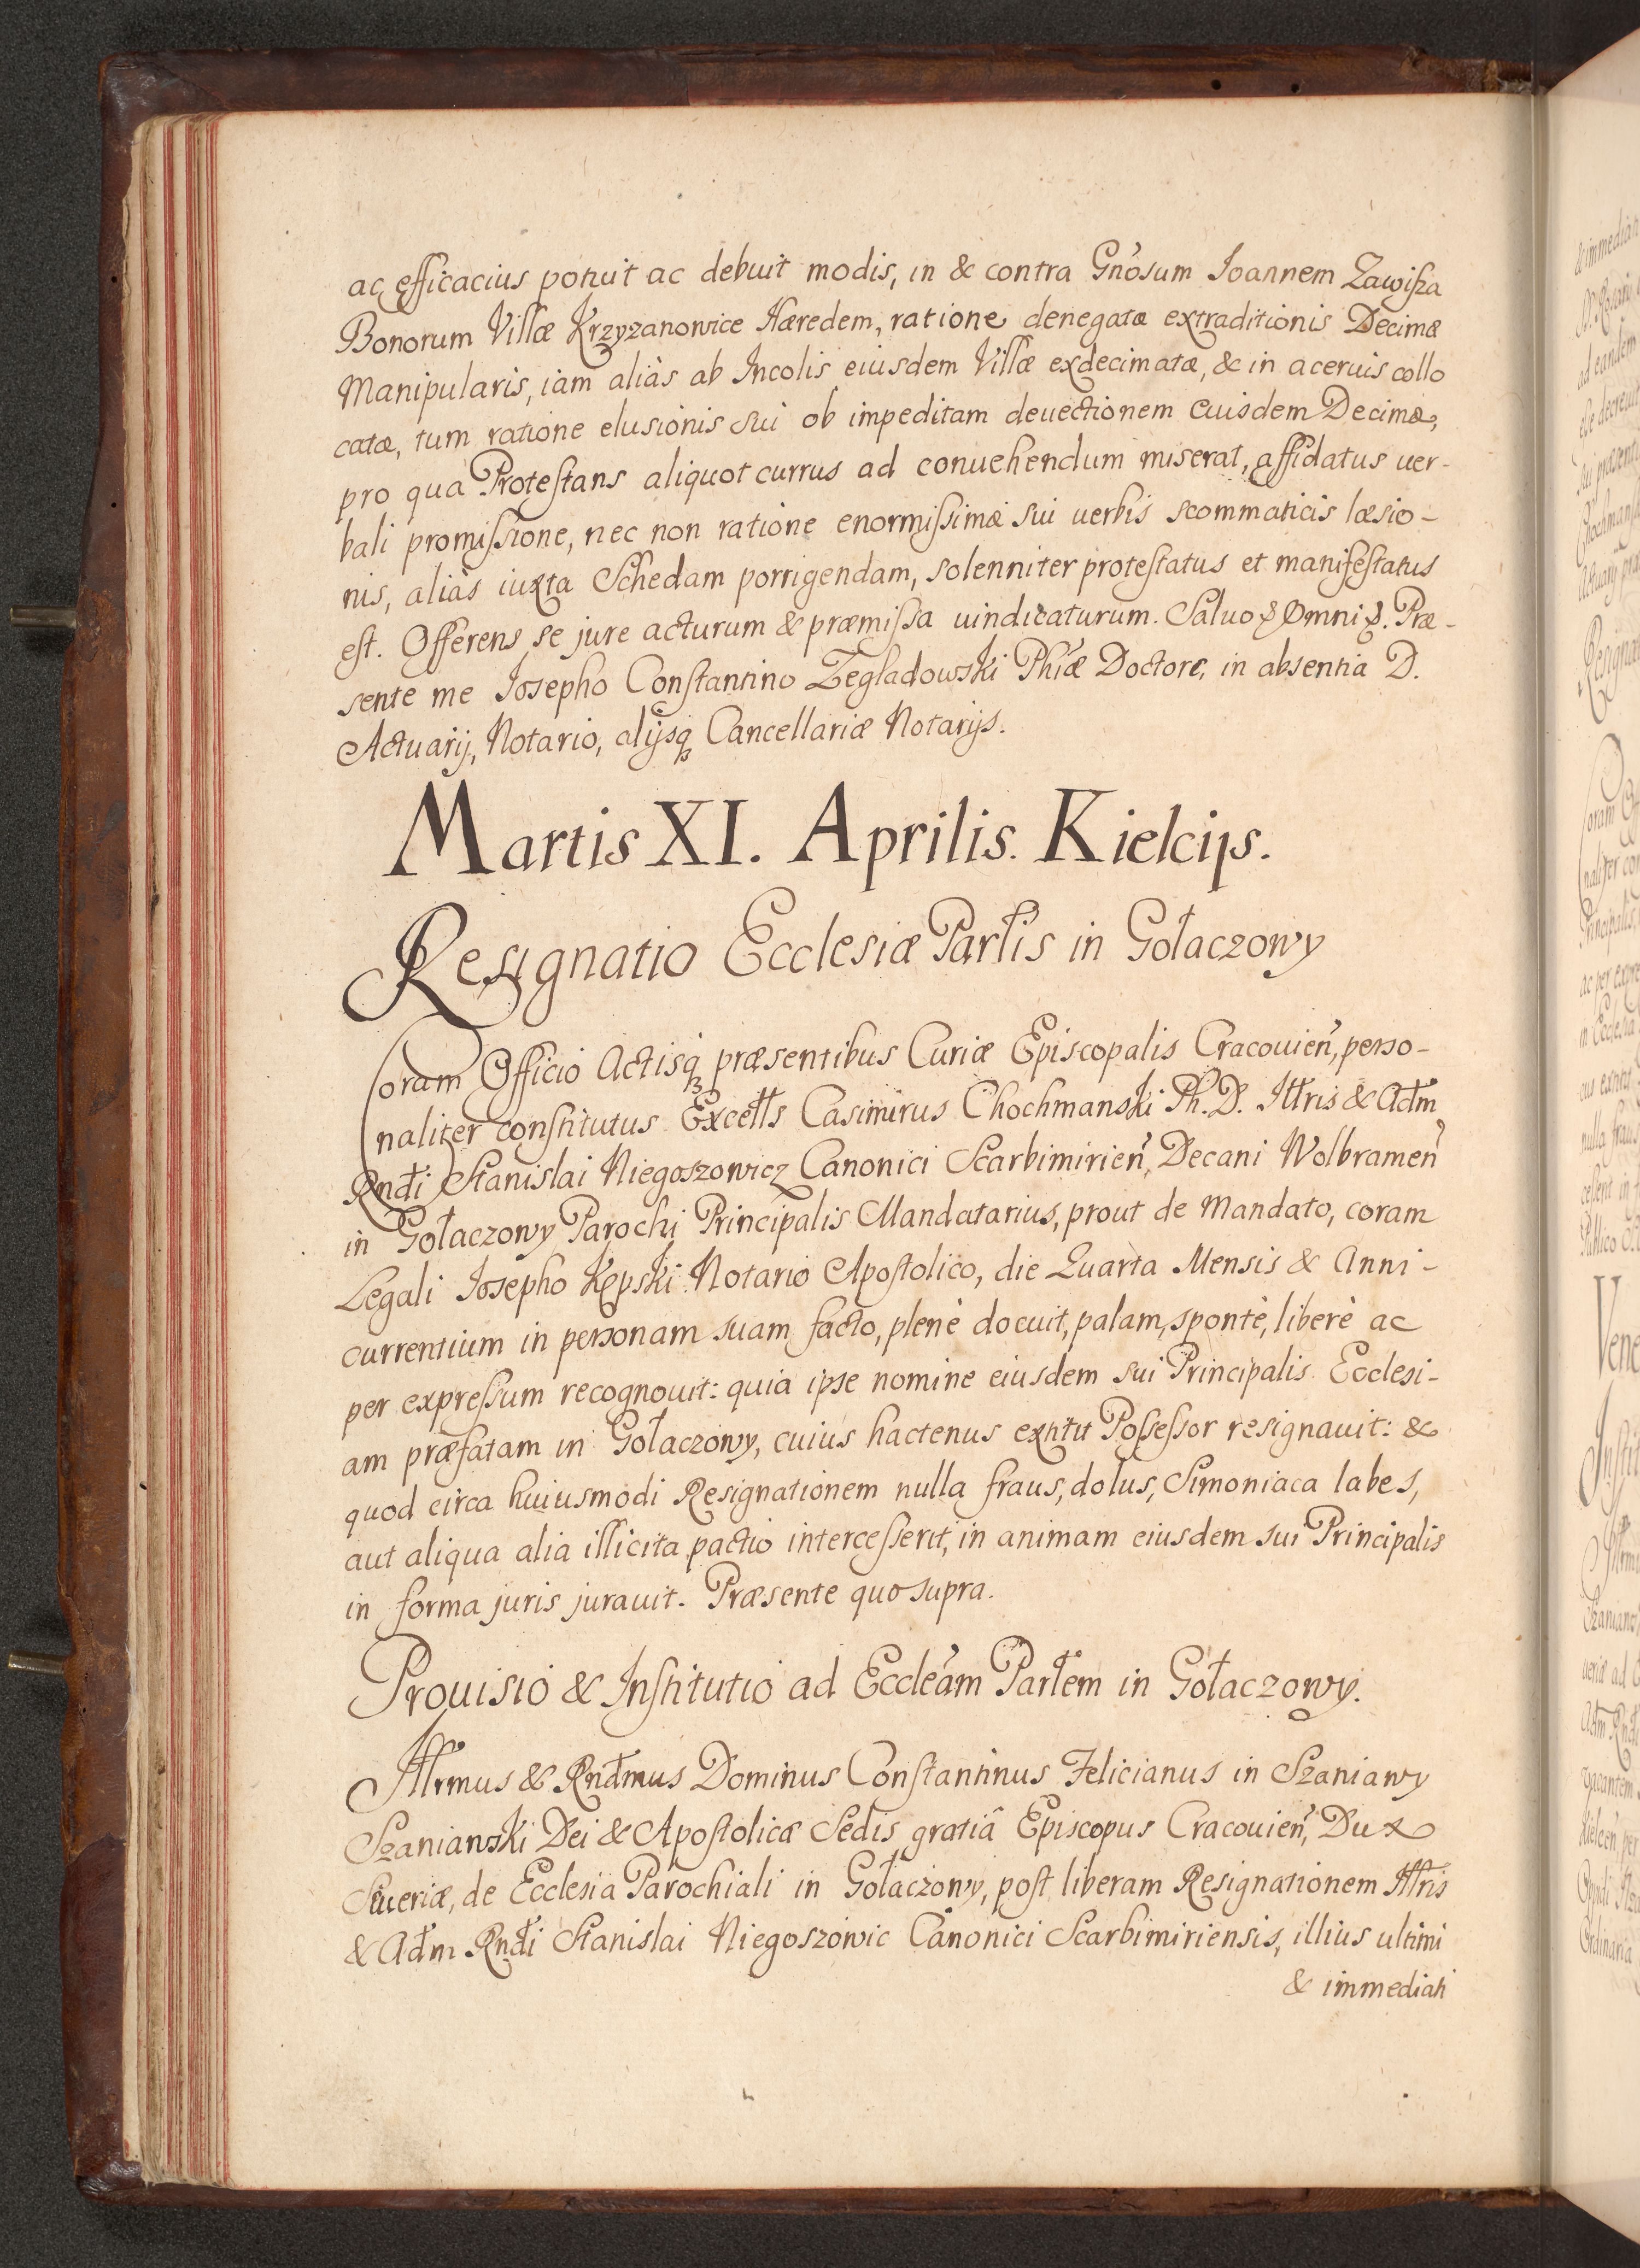 ac efficacius potuit ac debuit modis, in & contra Gnosum Ioannem Zawisza
Bonorum Villæ Krzyzanowice Hæredem, ratione denegatæ extraditionis Decimæ
Manipularis, iam aliàs ab Incolis eiusdem Villæ exdecimatæ, & in aceruis collo
catæ, tum ratione elusionis sui ob impeditam deuectionem euisdem Decimæ,
pro qua Protestans aliquot currus ad conuehendum miserat, affidatus uer-
bali promissione, nec non ratione enormissimæ sui uerbis scommaticis læsio-
nis, aliàs iuxta Schedam porrigendam, solenniter protestatus et manifestatus
est. Offerens se jure acturum & præmissa uindicaturum. Saluo & Omni &. Præ-
sente me Iosepho Constantino Zegladowski Phiæ Doctore, in absentia D.
Actuarij, Notario, alijsq Cancellariæ Notarijs.
Martis XI. Aprilis. Kielcijs.
Resignatio Ecclesiæ Partis in Gołaczowy
Coram Officio Actisq præsentibus Curiæ Episcopalis Cracouien, perso-
naliter constitutus Excells Casimirus Chochmanski Ph. D. Illris & Adm
Rndi Stanislai Niegoszowicz Canonici Scarbimirien, Decani Wolbramen
in Gołaczowy Parochi Principalis Mandatarius, prout de Mandato, coram
Legali Iosepho Kępski Notario Apostolico, die Quarta Mensis & Anni-
currentium in personam suam facto, plenè docuit, palam, spontè, liberè ac
per expressum recognouit: quia ipse nomine eiusdem sui Principalis Ecclesi-
am præfatam in Gołaczowy, cuius hactenus extitit Possessor resignauit: &
quod circa huiusmodi Resignationem nulla fraus, dolus, Simoniaca labes,
aut aliqua alia illicita pactio intercesserit, in animam eiusdem sui Principalis
in forma juris jurauit. Præsente quo supra.
Prouisio & Institutio ad Eccleam Partem in Gołaczowy.
Illrmus & Rndmus Dominus Constantinus Felicianus in Szaniawy
Szaniawski Dei & Apostolicæ Sedis gratiâ Episcopus Cracouien, Dux
Seueriæ, de Ecclesia Parochiali in Gołaczowy, post liberam Resignationem Illris
& Adm Rndi Stanislai Niegoszowic Canonici Scarbimiriensis, illius ultimi
& immediati